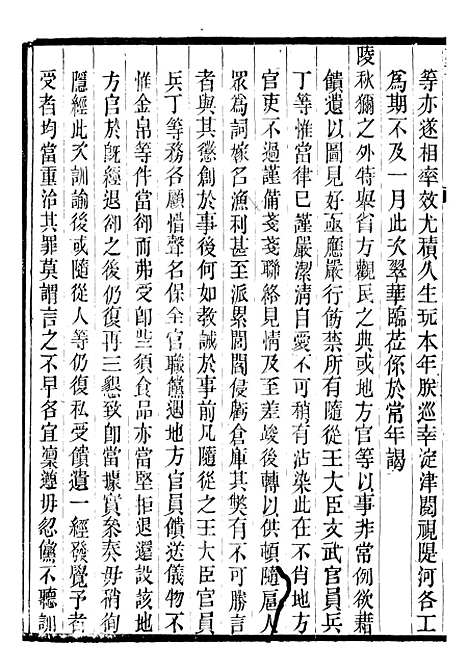 等亦遂相率效尤積久生玩本年朕巡幸淀津閱視隄河各工
爲期不及一月此次翠華臨莅係於常年謁
陵秋獮之外特舉省方觀民之典或地方官等以事非常例欲藉
饋遺以圖見好亟應嚴行飭禁所有隨從王大臣文武官員兵
丁等惟當律已謹嚴潔清自矢不可稍有沾染此在不肖地方
官吏不過謹備戔戔聯絡見情及至差竣後轉以供頓隨扈人
眾爲詞嫁名漁利甚至派累閭閻侵虧倉庫其獘有不可勝言
者與其懲創於事後何如教誡於事前凡隨從之王大臣官員
兵丁等務各顧惜聲名保全官職儻遇地方官員饋送儀物不
惟金帛等件當卻而弗受卽些須食品亦當堅拒退還設該地
方官於旣經退卻之後仍復再三懇致卽當據實叅奏毋稍徇
隱經此次訓諭後或隨從人等仍復私受饋遺一經發覺予者
受者均當重治其罪莫謂言之不早各宜凜遵毋忽儻不聽訓